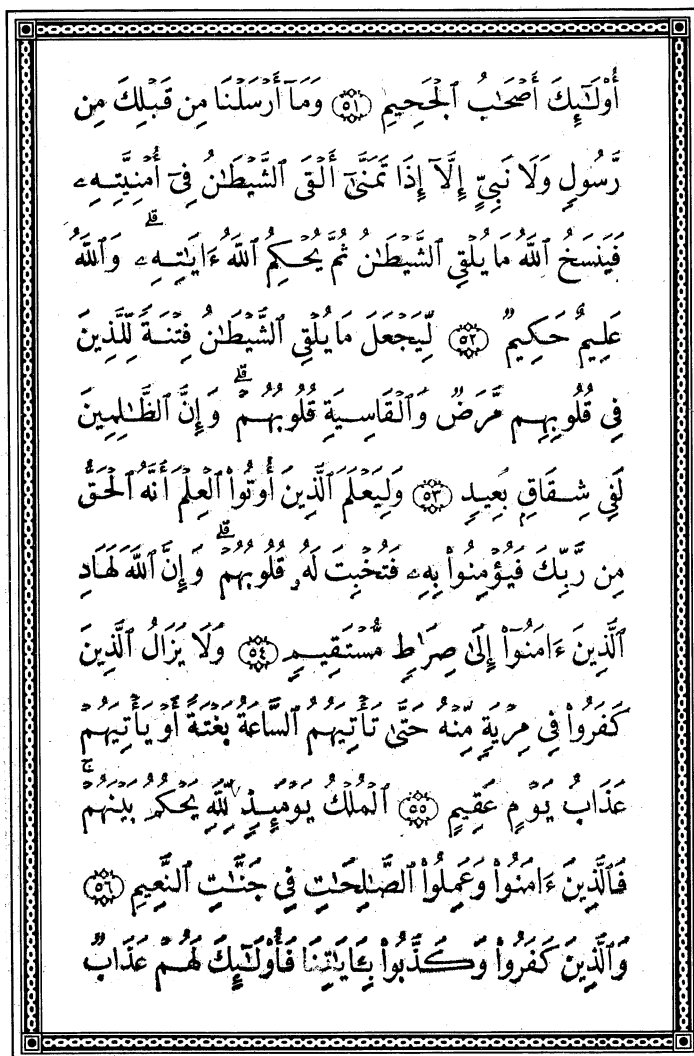 أُوْلَٰٓئِكَ أَصْحَٰبُ ٱلْجَحِيمِ ﴿٥١﴾ وَمَآ أَرْسَلْنَا مِن قَبْلِكَ مِن
رَّسُولٍ وَلَا نَبِيٍّ إِلَّآ إِذَا تَمَنَّىٰٓ أَلْقَى ٱلشَّيْطَٰنُ فِىٓ أُمْنِيَّتِهِۦ
فَيَنسَخُ ٱللَّهُ مَا يُلْقِى ٱلشَّيْطَٰنُ ثُمَّ يُحْكِمُ ٱللَّهُ ءَايَٰتِهِۦ ۗ وَٱللَّهُ
عَلِيمٌ حَكِيمٌ ﴿٥٢﴾ لِّيَجْعَلَ مَا يُلْقِى ٱلشَّيْطَٰنُ فِتْنَةً لِّلَّذِينَ
فِى قُلُوبِهِم مَّرَضٌ وَٱلْقَاسِيَةِ قُلُوبُهُمْ ۗ وَإِنَّ ٱلظَّٰلِمِينَ
لَفِى شِقَاقٍۭ بَعِيدٍ ﴿٥٣﴾ وَلِيَعْلَمَ ٱلَّذِينَ أُوتُوا۟ ٱلْعِلْمَ أَنَّهُ ٱلْحَقُّ
مِن رَّبِّكَ فَيُؤْمِنُوا۟ بِهِۦ فَتُخْبِتَ لَهُۥ قُلُوبُهُمْ ۗ وَإِنَّ ٱللَّهَ لَهَادِ
ٱلَّذِينَ ءَامَنُوٓا۟ إِلَىٰ صِرَٰطٍ مُّسْتَقِيمٍ ﴿٥٤﴾ وَلَا يَزَالُ ٱلَّذِينَ
كَفَرُوا۟ فِى مِرْيَةٍ مِّنْهُ حَتَّىٰ تَأْتِيَهُمُ ٱلسَّاعَةُ بَغْتَةً أَوْ يَأْتِيَهُمْ
عَذَابُ يَوْمٍ عَقِيمٍ ﴿٥٥﴾ ٱلْمُلْكُ يَوْمَئِذٍ لِّلَّهِ يَحْكُمُ بَيْنَهُمْ ۚ
فَٱلَّذِينَ ءَامَنُوا۟ وَعَمِلُوا۟ ٱلصَّٰلِحَٰتِ فِى جَنَّٰتِ ٱلنَّعِيمِ ﴿٥٦﴾
وَٱلَّذِينَ كَفَرُوا۟ وَكَذَّبُوا۟ بِـَٔايَٰتِنَا فَأُو۟لَٰٓئِكَ لَهُمْ عَذَابٌ